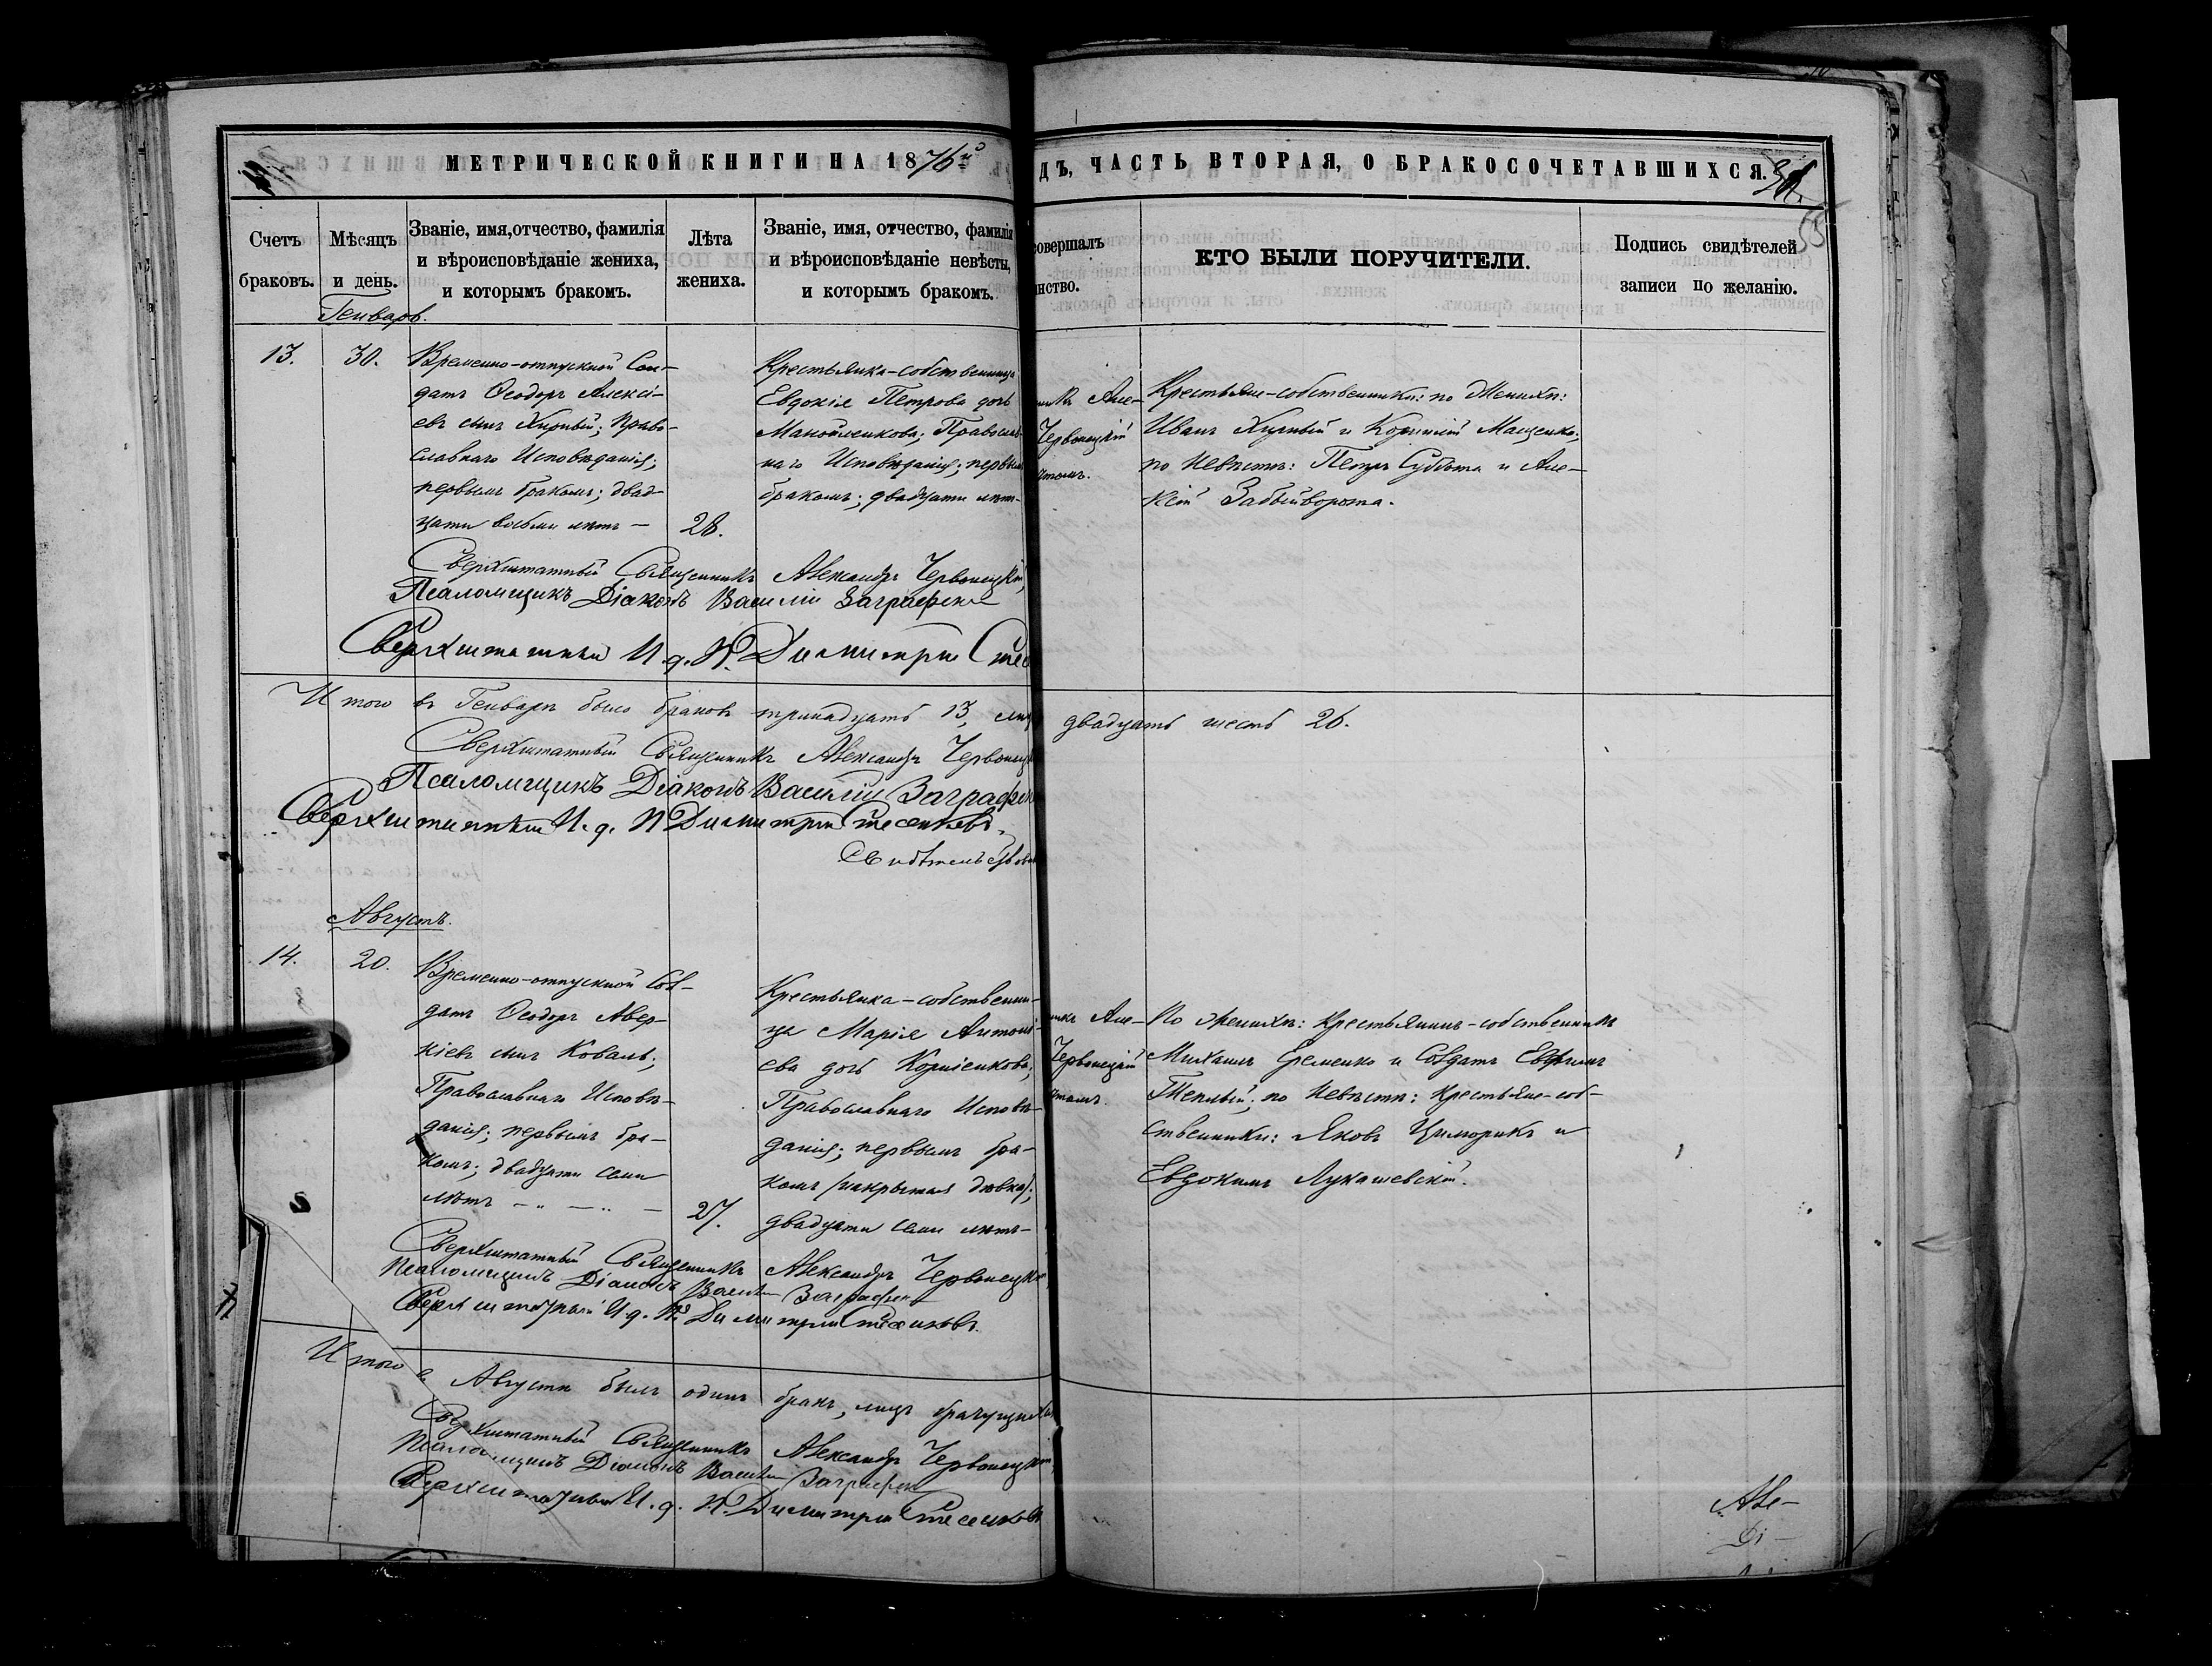 МЕТРИЧЕСКОЙ КНИГИ НА 1876й
ДЪ, ЧАСТЬ ВТОРАЯ, О БРАКОСОЧЕТАВШИХСЯ.
55
Счетъ браковъ.
Мѣсяцъ и день.
Званіе, имя, отчество, фамилія
и вѣроисповѣданіе жениха,
и которымъ бракомъ.
Лѣта
жениха.
Званіе, имя, отчество, фамилія
и вѣроисповѣданіе невѣсты,
и которымъ бракомъ.
совершалъ
нство.
КТО БЫЛИ ПОРУЧИТЕЛИ.
Подпись свидѣтелей
записи по желанію.
Генварь.
13.
30.
Временно-отпускной Сол-
датъ Ѳеодоръ Алексі-
евъ сынъ Хирный; Право-
славнаго Исповѣданія;
первымъ бракомъ; двад-
цати восьми лѣтъ —
28.
Крестьянка-собственница
Евдокія Петрова дочь
Манойленкова; Православ-
наго Исповѣданія; первымъ
бракомъ; двадцати лѣтъ-
икъ Але-
Червонецкій
Крестьяне-собственники: по Женихѣ:
Иванъ Хирный и Корнилій Мащенко;
по Невѣстѣ: Петръ Суббота и Але-
ксій Забійворота.
Сверхштатный Священникъ Александръ Червонецкій,
Псаломщикъ Діаконъ Василій Заграфскій
Сверхштатный И. д. П. Димитрій
Итого въ Генварѣ было браковъ тринадцать 13, лицъ двадцать шесть 26.
Сверхштатный Священникъ Александръ Червонецкій
Псаломщикъ Діаконъ Василій Заграфск
Сверхштатный И. д. П. Димитрій
Августъ.
14.
20.
Временно-отпускной Сол-
датъ Ѳеодоръ Авер-
кіевъ сынъ Коваль;
Православнаго Исповѣ-
данія; первымъ бра-
комъ; двадцати семи
лѣтъ - „ — „ —
27.
Крестьянка-собственни-
ца Марія Антоні-
ева дочь Корніенкова;
Православнаго Исповѣ-
данія; первымъ бра-
комъ (накрытая дѣвка);
двадцати семи лѣтъ-
икъ Але-
Червонецкій
По Женихѣ: Крестьянинъ-собственникъ
Михаилъ Еременко и Солдатъ Евфимъ
Теплый; по Невѣстѣ: Крестьяне-соб-
ственники: Яковъ Цимерикъ и
Евдокимъ Лукашевскій.
Сверхштатный Священникъ Александръ Червонецкій
Псаломщикъ Діаконъ Василій Заграфскій
Сверхштатный И. д. П. Димитрій
Итого въ Августѣ былъ одинъ бракъ, лицъ
Сверхштатный Священникъ Александръ Червонецкій,
Псаломщикъ Діаконъ Василій Заграфскій
Сверхштатный И. д. П. Димитрій
Але-
Ді-